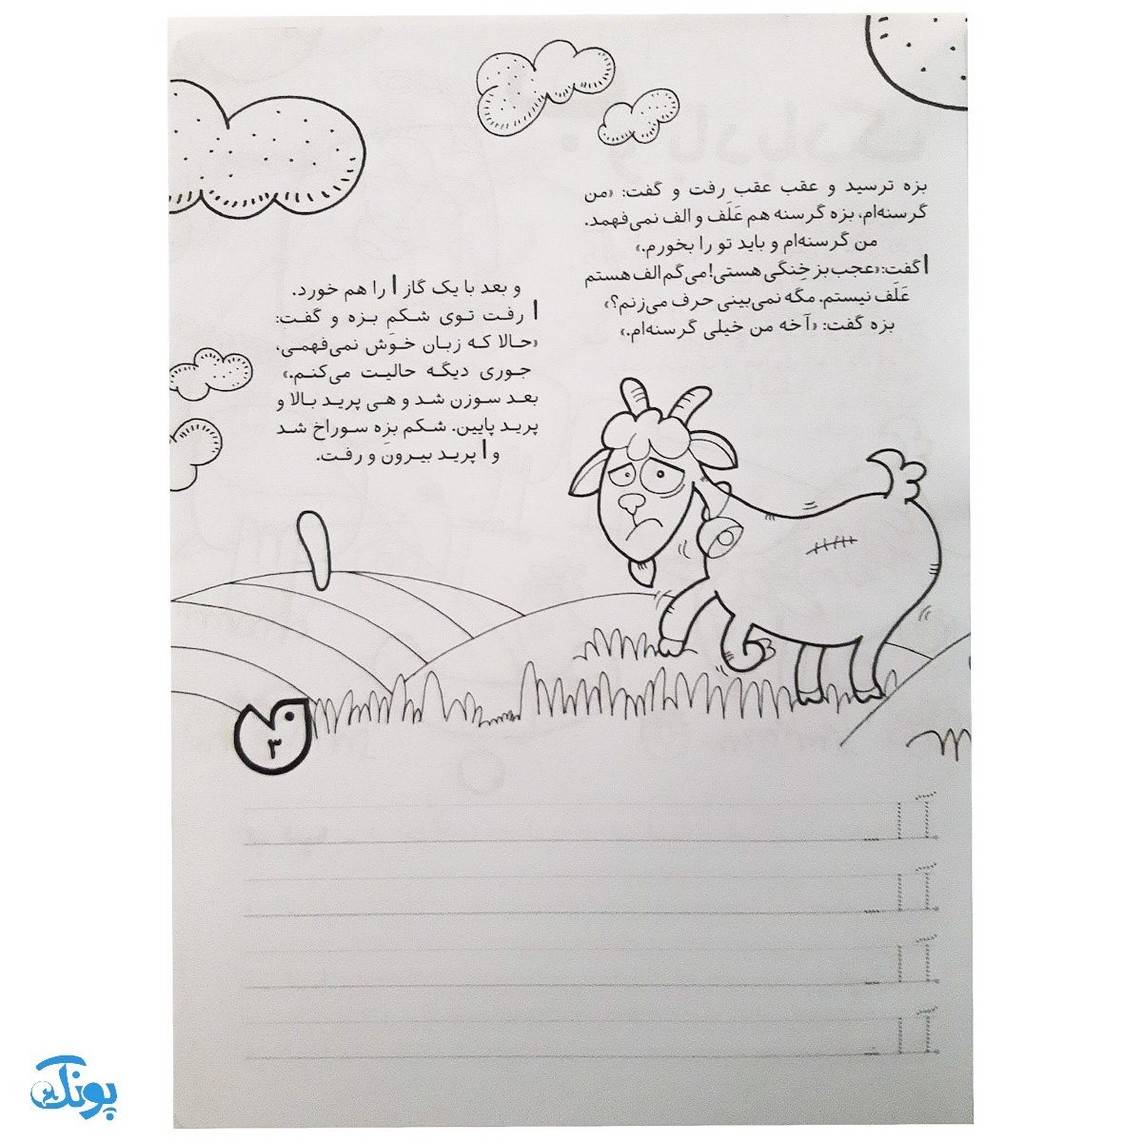 بزه ترسید و عقب عقب رفت و گفت: «من
گرسنه‌ام، بزه گرسنه هم عَلَف و الف نمی‌فهمد.
من گرسنه‌ام و باید تو را بخورم.»
ا گفت: «عجب بز خِنگی هستی! می‌گم الف هستم
عَلَف نیستم. مگه نمی‌بینی حرف می‌زنم؟»
بزه گفت: «آخه من خیلی گرسنه‌ام.»
و بعد با یک گاز ا را هم خورد.
ا رفت توی شکم بزه و گفت:
«حالا که زبان خوَش نمی‌فهمی،
جوری دیگه حالیت می‌کنم.»
بعد سوزن شد و هی پرید بالا و
پرید پایین. شکم بزه سوراخ شد
و ا پرید بیرون و رفت.
۳
آ ا
آ ا
آ ا
آ ا
پونک